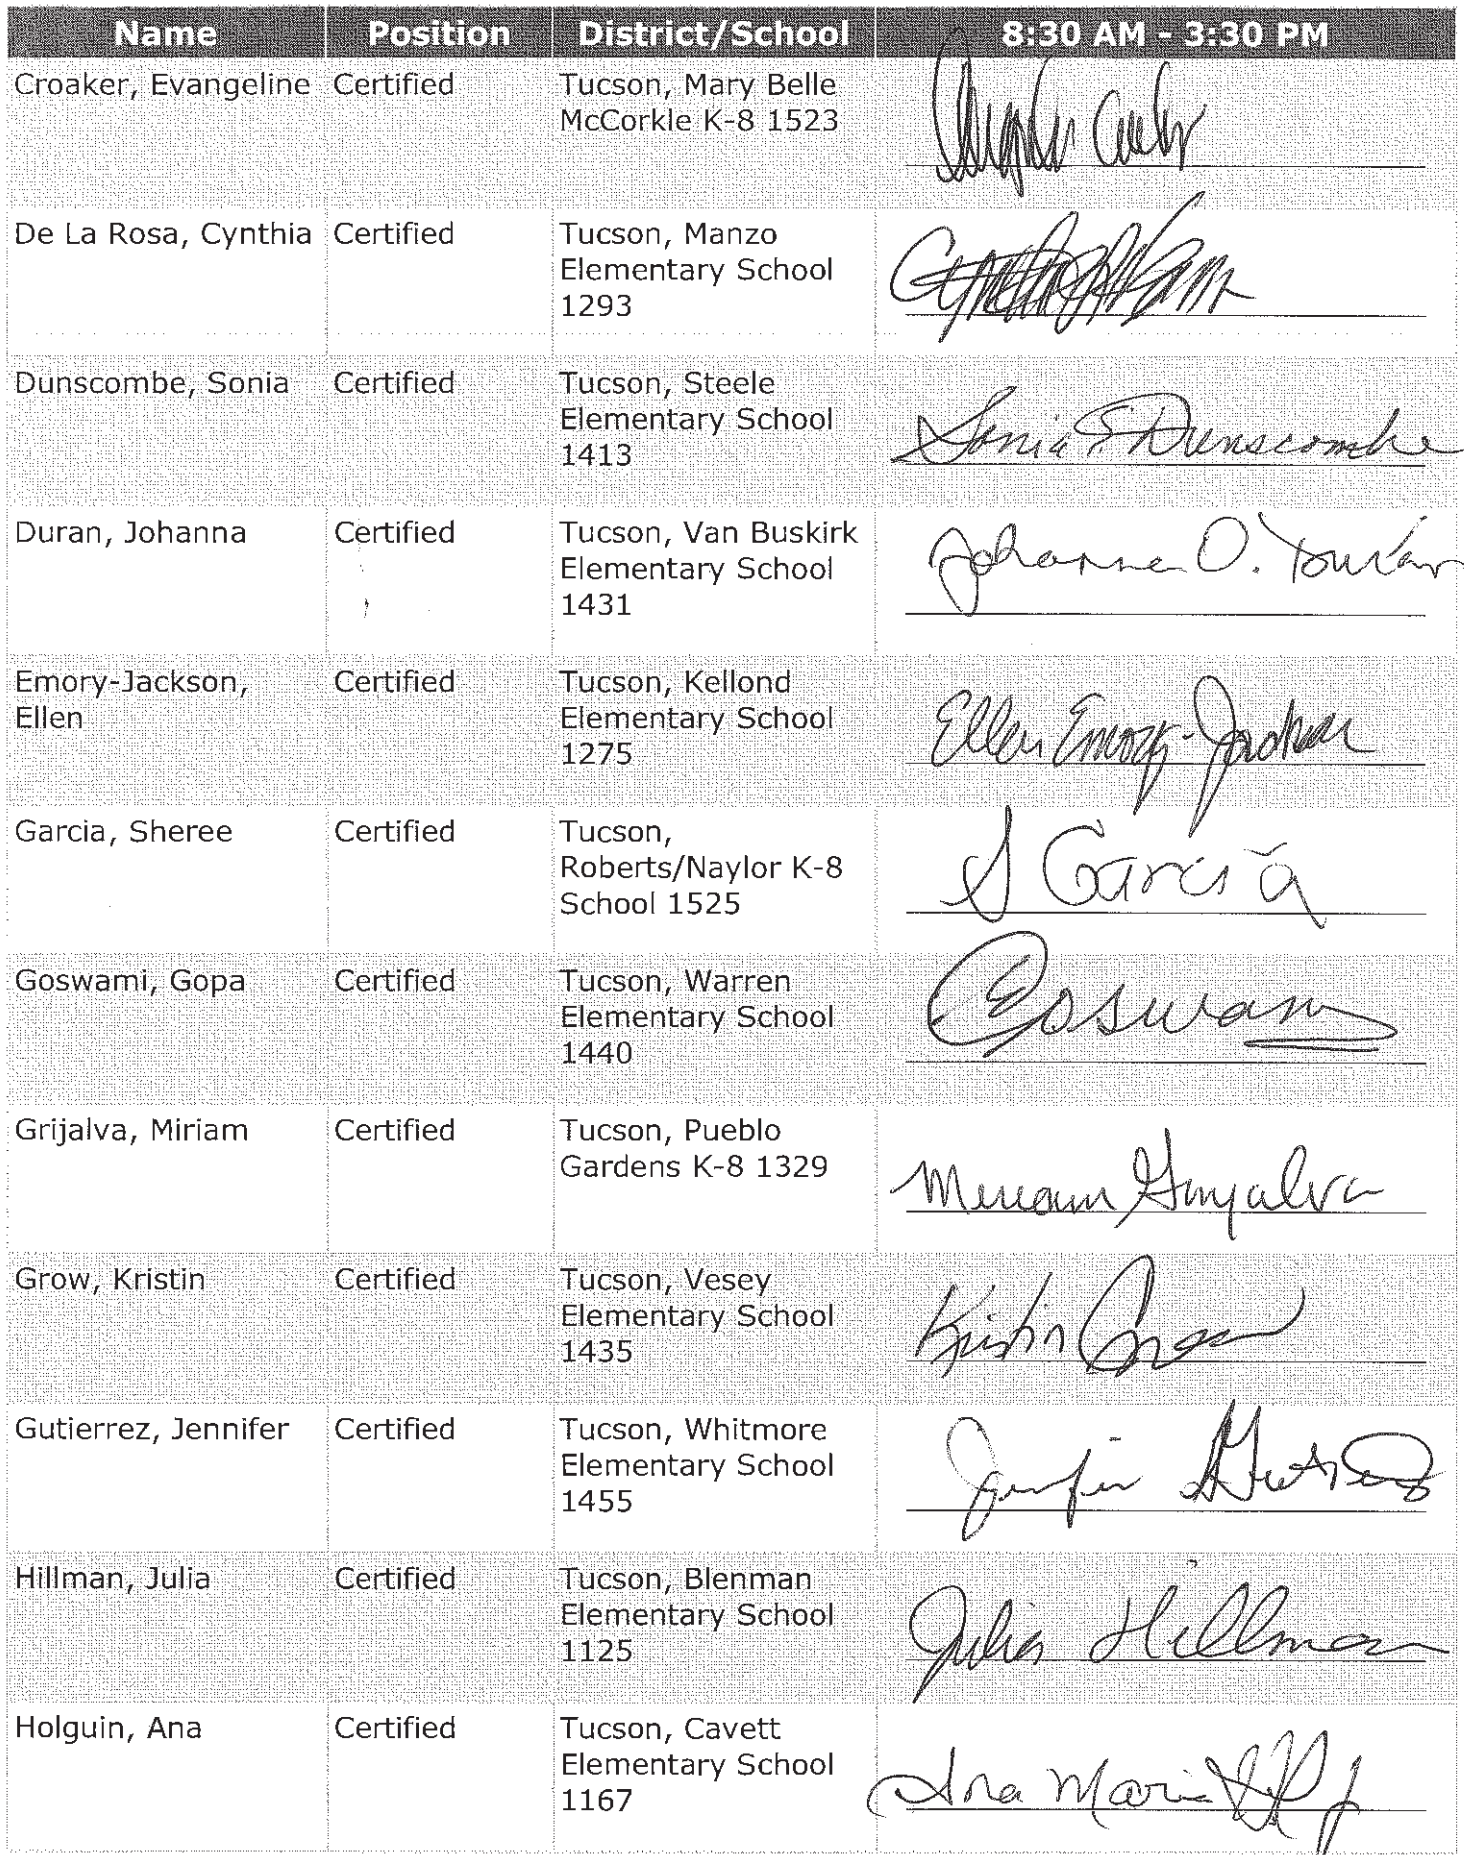 Name Position District/School 8:30 AM - 3:30 PM
Croaker, Evangeline Certified Tucson, Mary Belle
McCorkle K-8 1523
De La Rosa, Cynthia Certified Tucson, Manzo
Elementary School
1293
Dunscombe, Sonia Certified Tucson, Steele
Elementary School
1413
Sonia S. Dunscombe
Duran, Johanna Certified Tucson, Van Buskirk
Elementary School
1431
Johanna O. Duran
Emory-Jackson, Certified Tucson, Kellond
Ellen Elementary School
1275
Ellen Emory-Jackson
Garcia, Sheree Certified Tucson,
Roberts/Naylor K-8
School 1525
S Garcia
Goswami, Gopa Certified Tucson, Warren
Elementary School
1440
Goswami
Grijalva, Miriam Certified Tucson, Pueblo
Gardens K-8 1329
Miriam Grijalva
Grow, Kristin Certified Tucson, Vesey
Elementary School
1435
Kristin Grow
Gutierrez, Jennifer Certified Tucson, Whitmore
Elementary School
1455
Jennifer Gutierrez
Hillman, Julia Certified Tucson, Blenman
Elementary School
1125
Julia Hillman
Holguin, Ana Certified Tucson, Cavett
Elementary School
1167
Ana Maria